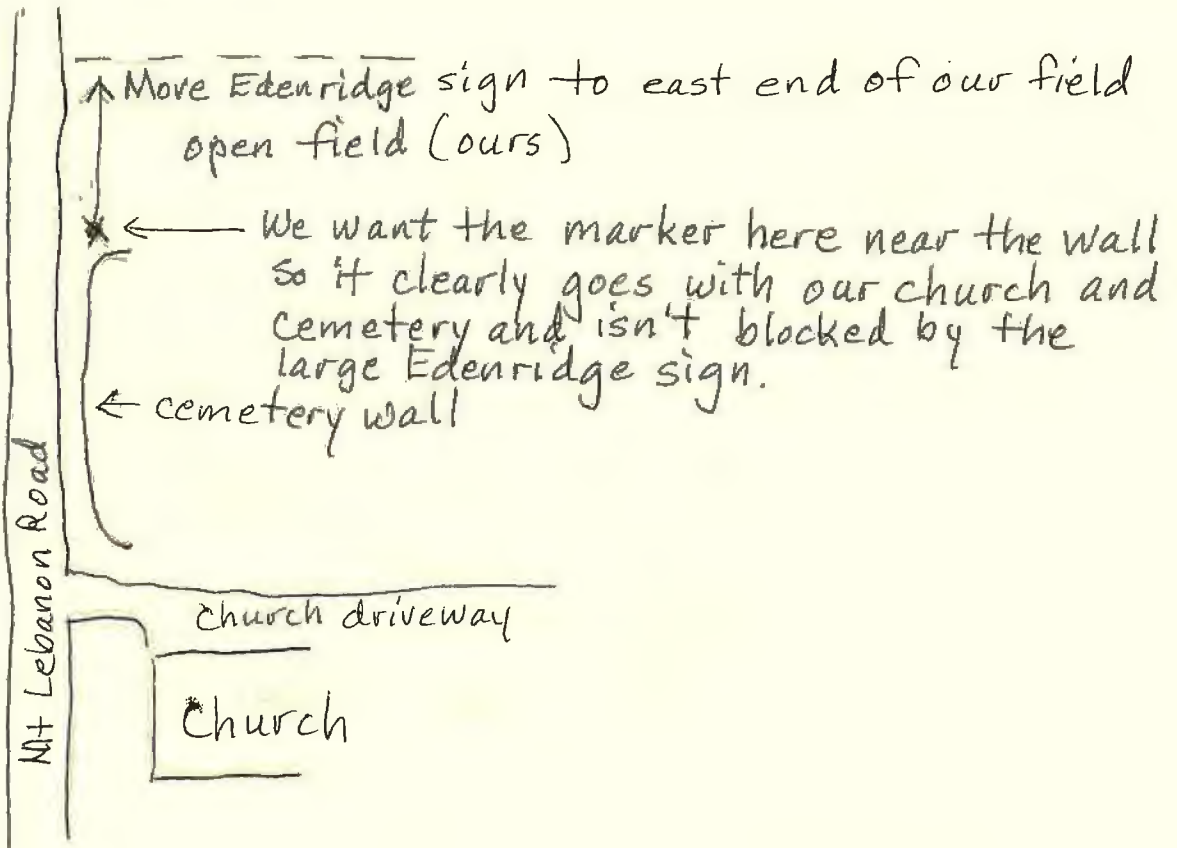 Move Edenridge sign to east end of our field
open field (ours)
We want the marker here near the wall
so it clearly goes with our church and
cemetery and isn't blocked by the
large Edenridge sign.
cemetery wall
Mt Lebanon Road
church driveway
Church